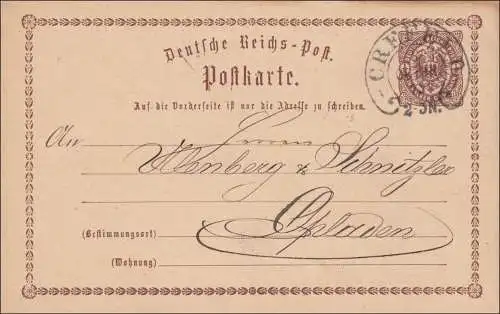 Deutsche Reichs-Post.
Postkarte.
CREFELD
2-3N.
Auf die Vorderseite ist nur die Adresse zu schreiben.
An
Ulenberg & Schnitzler
Opladen
(Bestimmungsort)
(Wohnung)